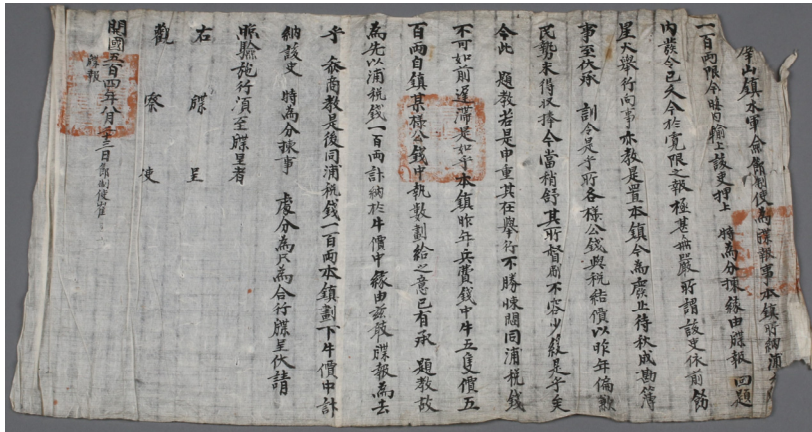 山鎭水軍僉節制使爲牒報事本鎭所納浦
一百兩限今晦內輸上該吏押上 時爲分揀緣由牒報 回題
內發令已久今於寬限之報極甚無嚴所謂該吏依前飭
星火擧行向事亦敎是置本鎭今爲廢止待秋成勘簿
事至伏承 訓令是乎所各樣公錢與稅結價以昨年偏歉
民勢未得收捧今當稍舒其所督刷不容少緩是乎矣
今此 題敎若是申重其在擧行不勝悚悶同浦稅錢
不可如前遲滯是如乎本鎭昨年兵費錢中牛五隻價五
百兩自鎭某樣公錢中執數劃給之意已有承 題敎故
爲先以浦稅錢一百兩計納於牛價中緣由玆敢牒報爲去
乎 參商敎是後同浦稅錢一百兩本鎭劃下牛價中計
納該吏 時爲分揀事 處分爲只爲合行牒呈伏請
照驗施行須至牒呈者
右牒呈
觀察使
開國五百四年八月十三日僉節制使崔
牒報